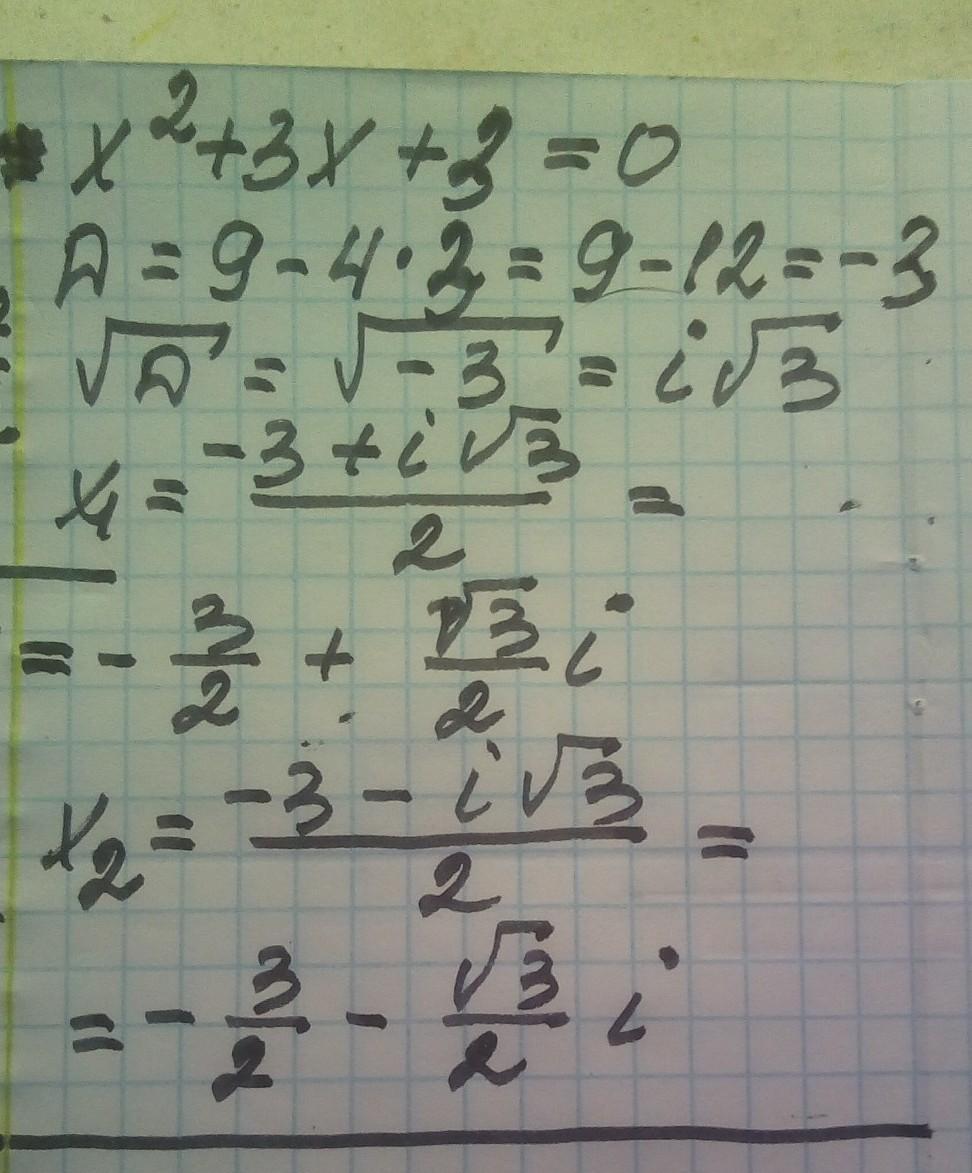 x²+3x+3=0
D=9-4·3=9-12=-3
√D=√-3=i√3
x₁=(-3+i√3)/2=
=-3/2+√3/2 i
x₂=(-3-i√3)/2=
=-3/2-√3/2 i